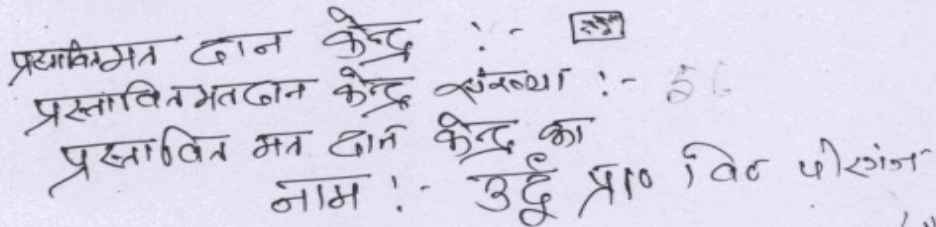 प्रस्तावित मत दान केन्द्र :-
प्रस्तावित मतदान केन्द्र संख्या :- 56
प्रस्तावित मत दान केन्द्र का
नाम :- उर्दू प्रा० वि० पीरगंज